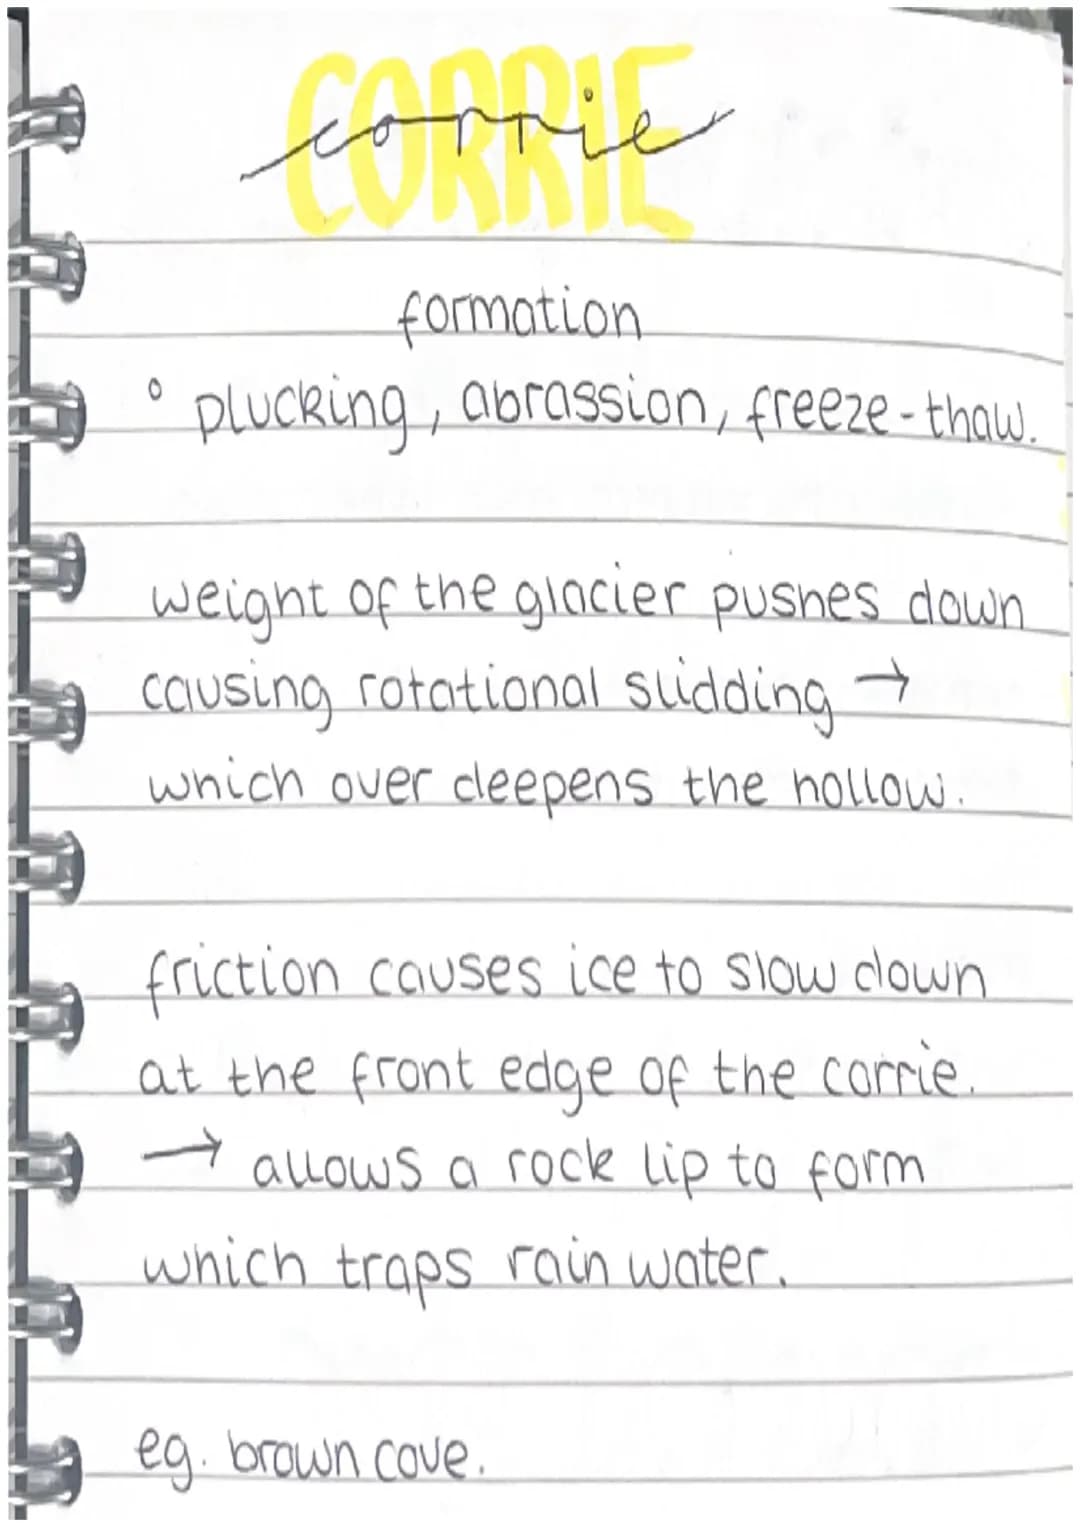 CORRIE
corrie
formation
° plucking, abrassion, freeze-thaw.
weight of the glacier pushes down
causing rotational slidding →
which over deepens the hollow.
friction causes ice to slow down
at the front edge of the corrie.
→ allows a rock lip to form
which traps rain water.
eg. brown cove.